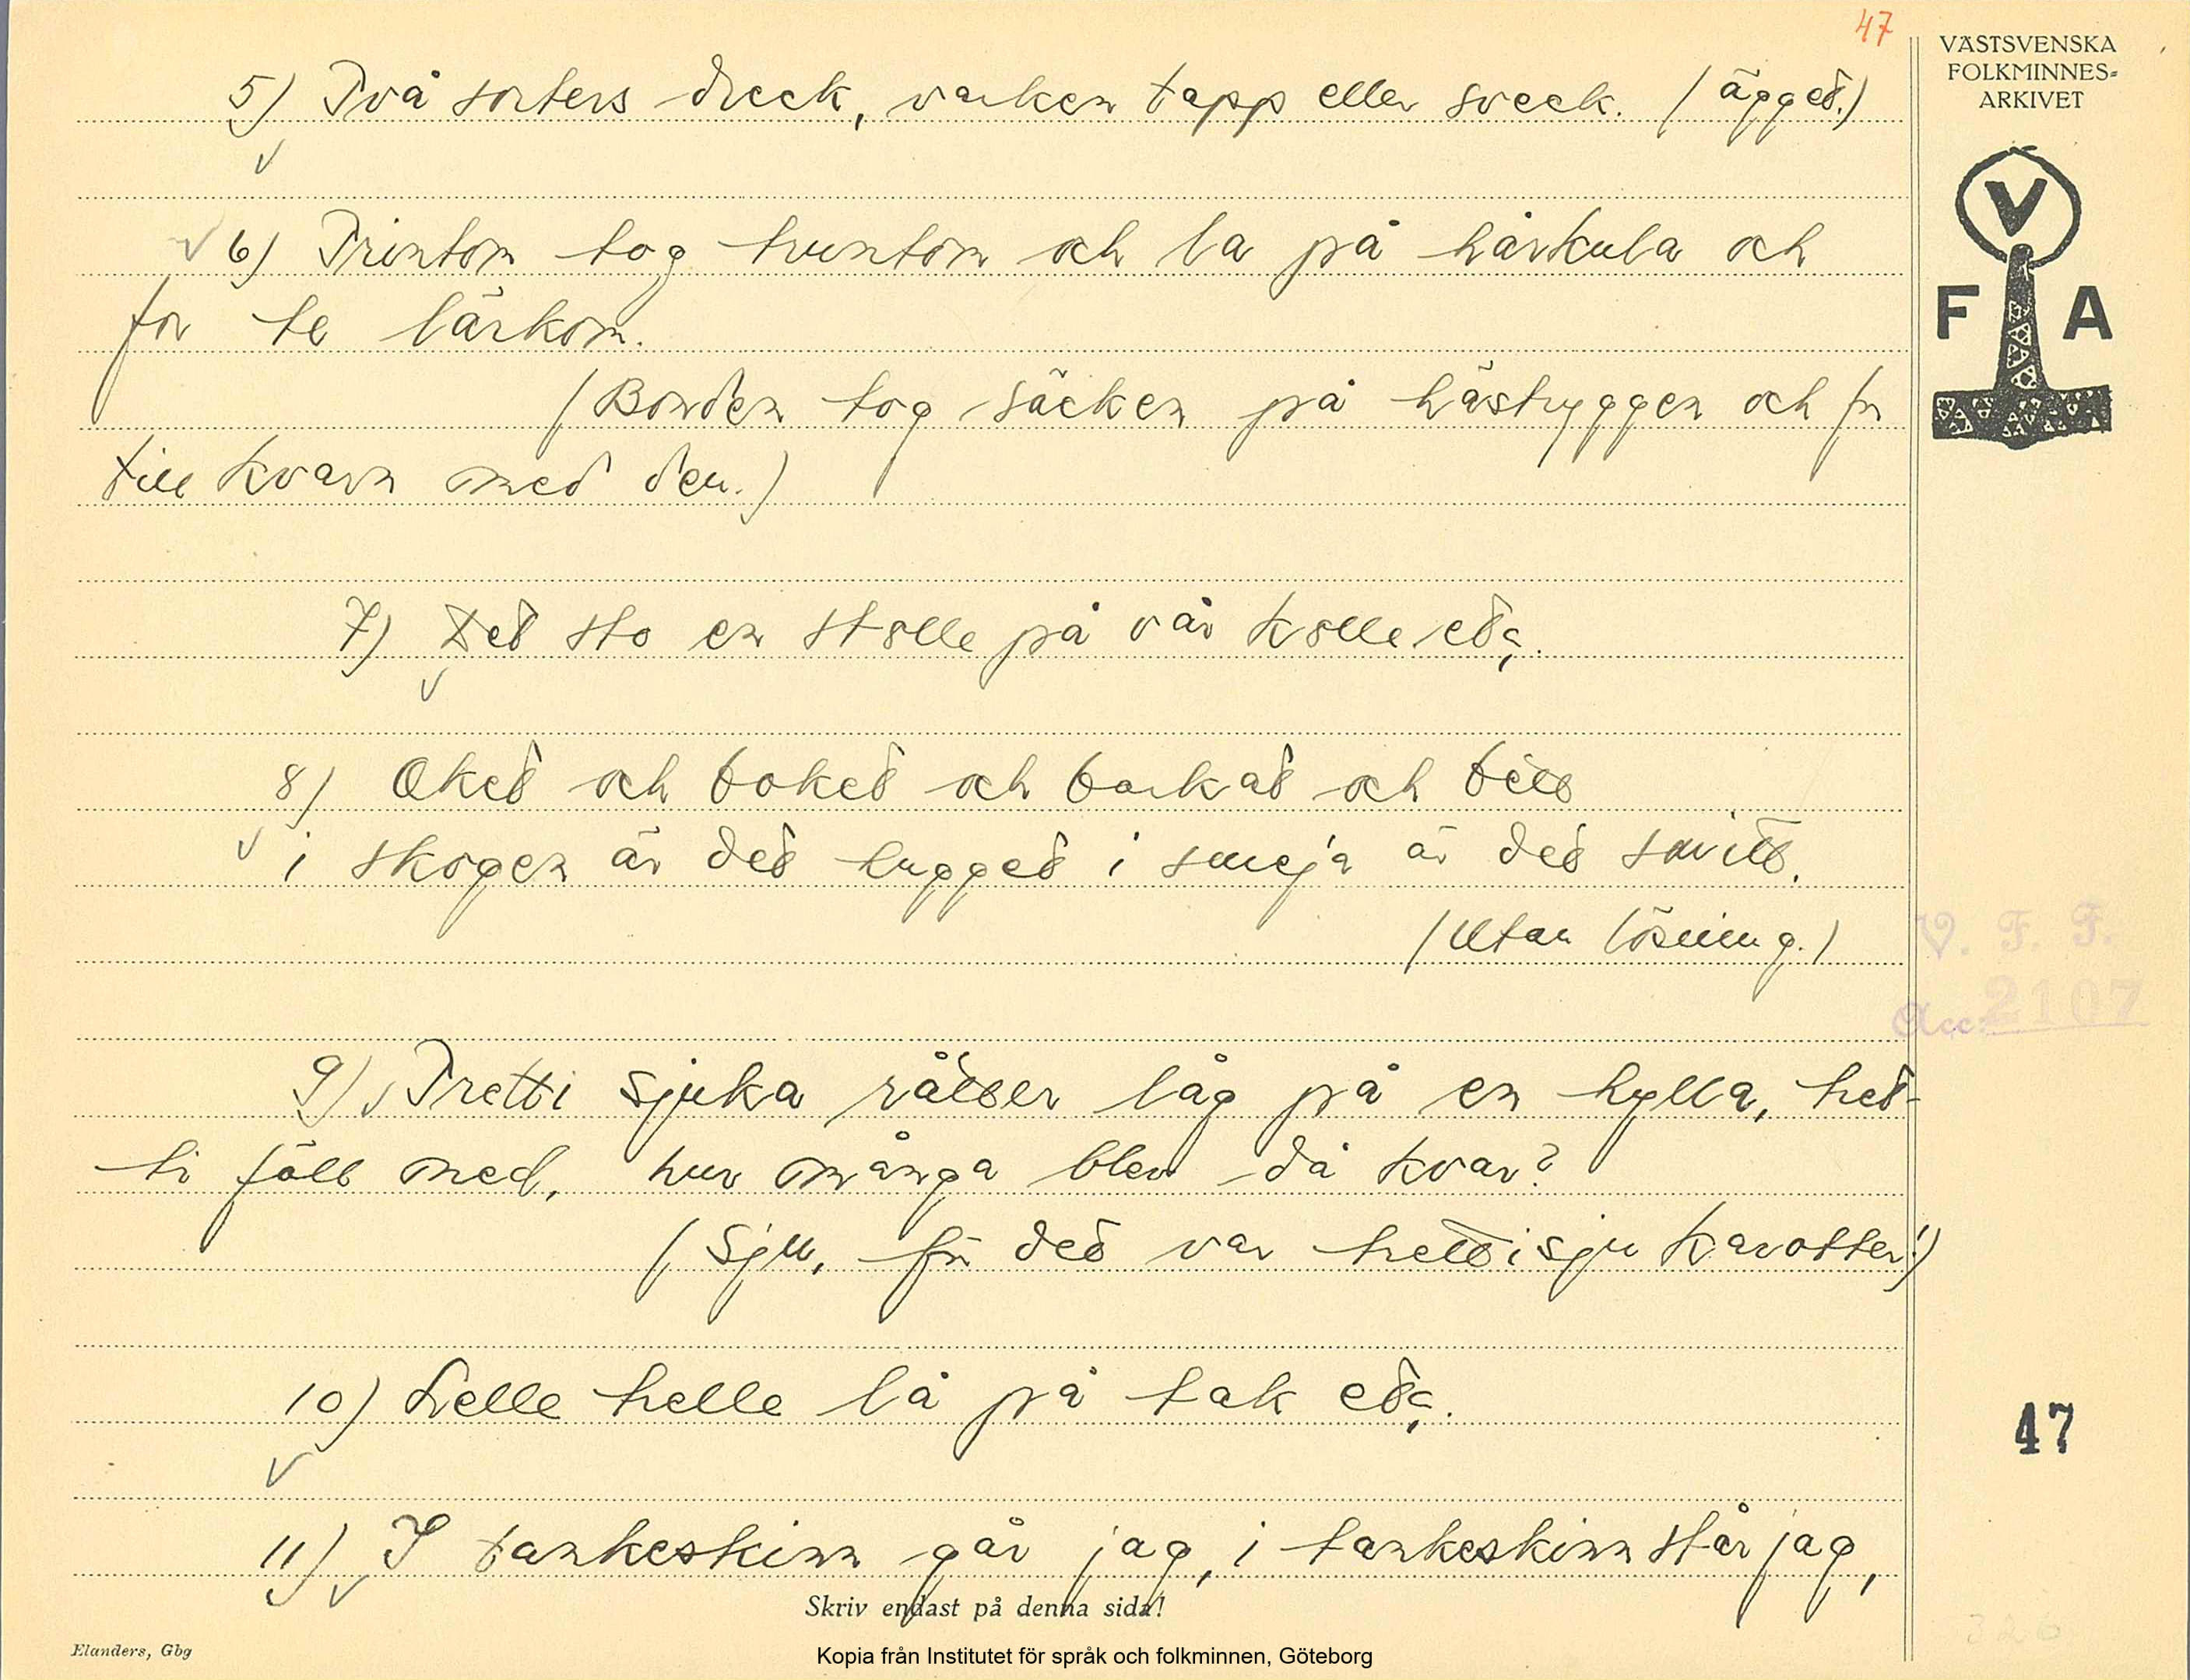 47
VÄSTSVENSKA
FOLKMINNES-
ARKIVET
V
F A
5) Två sorters dreck, varken tapp eller sveck. (ägget.)
6) Trintom tog truntom och la på hårkula och
for te lärkom.
(Bonden tog säcken på hästryggen och for
till kvarn med den.)
7) Det sto en stolle på vår kolle etc.
8) Oket och boket och barkat och
i skogen är det hugget i smeja är det smitt.
(Utan lösning.)
V. F. F.
Acc: 2107
9) Tretti sjuka råtter låg på en hylla, tret-
ti föll ned, hur många blev då kvar?
(Sju, för det var trettisju karotter!)
10) Lelle trelle lå på tak etc.
47
11) I tankeskinn går jag, i tankeskinn står jag,
Skriv endast på denna sida!
Elanders, Gbg
326
Kopia från Institutet för språk och folkminnen, Göteborg